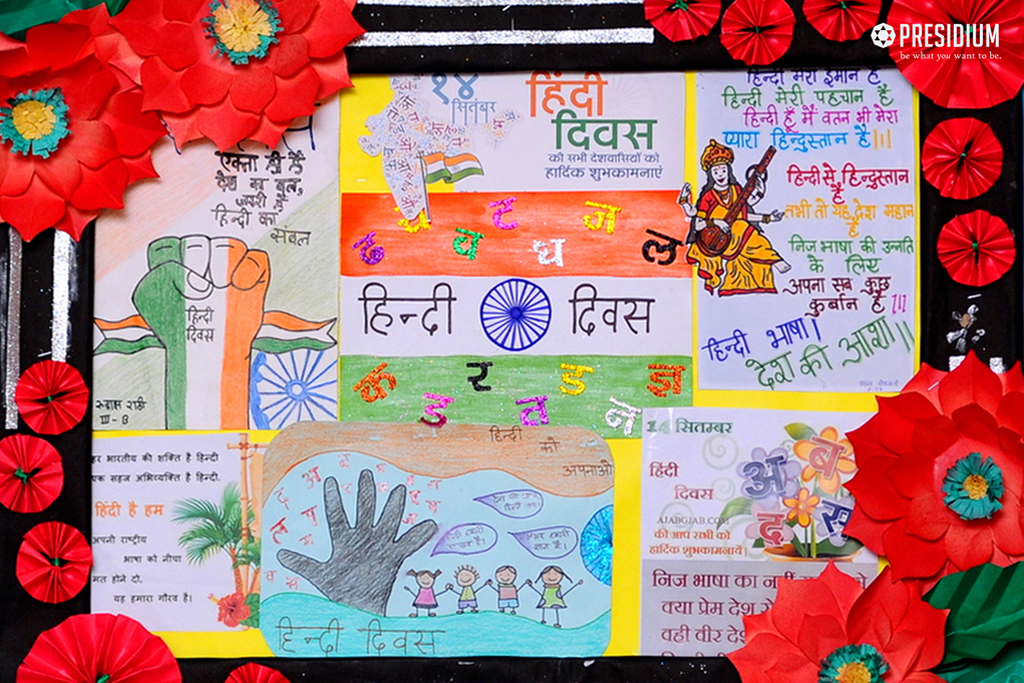 PRESIDIUM
be what you want to be.
एकता ही है
देश का बल,
जरूरी है
हिन्दी का
संबल
हिन्दी
दिवस
III - B
१४
सितंबर
हिंदी
दिवस
की सभी देशवासियों को
हार्दिक शुभकामनाएं
ट ज
ढ व ध ल
हिन्दी दिवस
क र ड ज्ञ
ड व न
हिन्दी मेरा ईमान है
हिन्दी मेरी पहचान है
हिन्दी हूँ मैं वतन भी मेरा
प्यारा हिन्दुस्तान है
हिन्दी से हिन्दुस्तान
है
तभी तो यह देश महान
है
निज भाषा की उन्नति
के लिए
अपना सब कुछ
कुर्बान है
हिन्दी भाषा।
देश की आशा॥
हर भारतीय की शक्ति है हिन्दी
एक सहज अभिव्यक्ति है हिन्दी.
हिंदी है हम
अपनी राष्ट्रीय
भाषा को नीचा
मत होने दो.
यह हमारा गौरव है।
हिन्दी को
अपनाओ
हिन्दी दिवस
14 सितम्बर
हिंदी
दिवस
AJABGJAB.COM
की आप सभी को
हार्दिक शुभकामनायें
अ ब
द स
निज भाषा का
क्या प्रेम देश
वही वीर दे